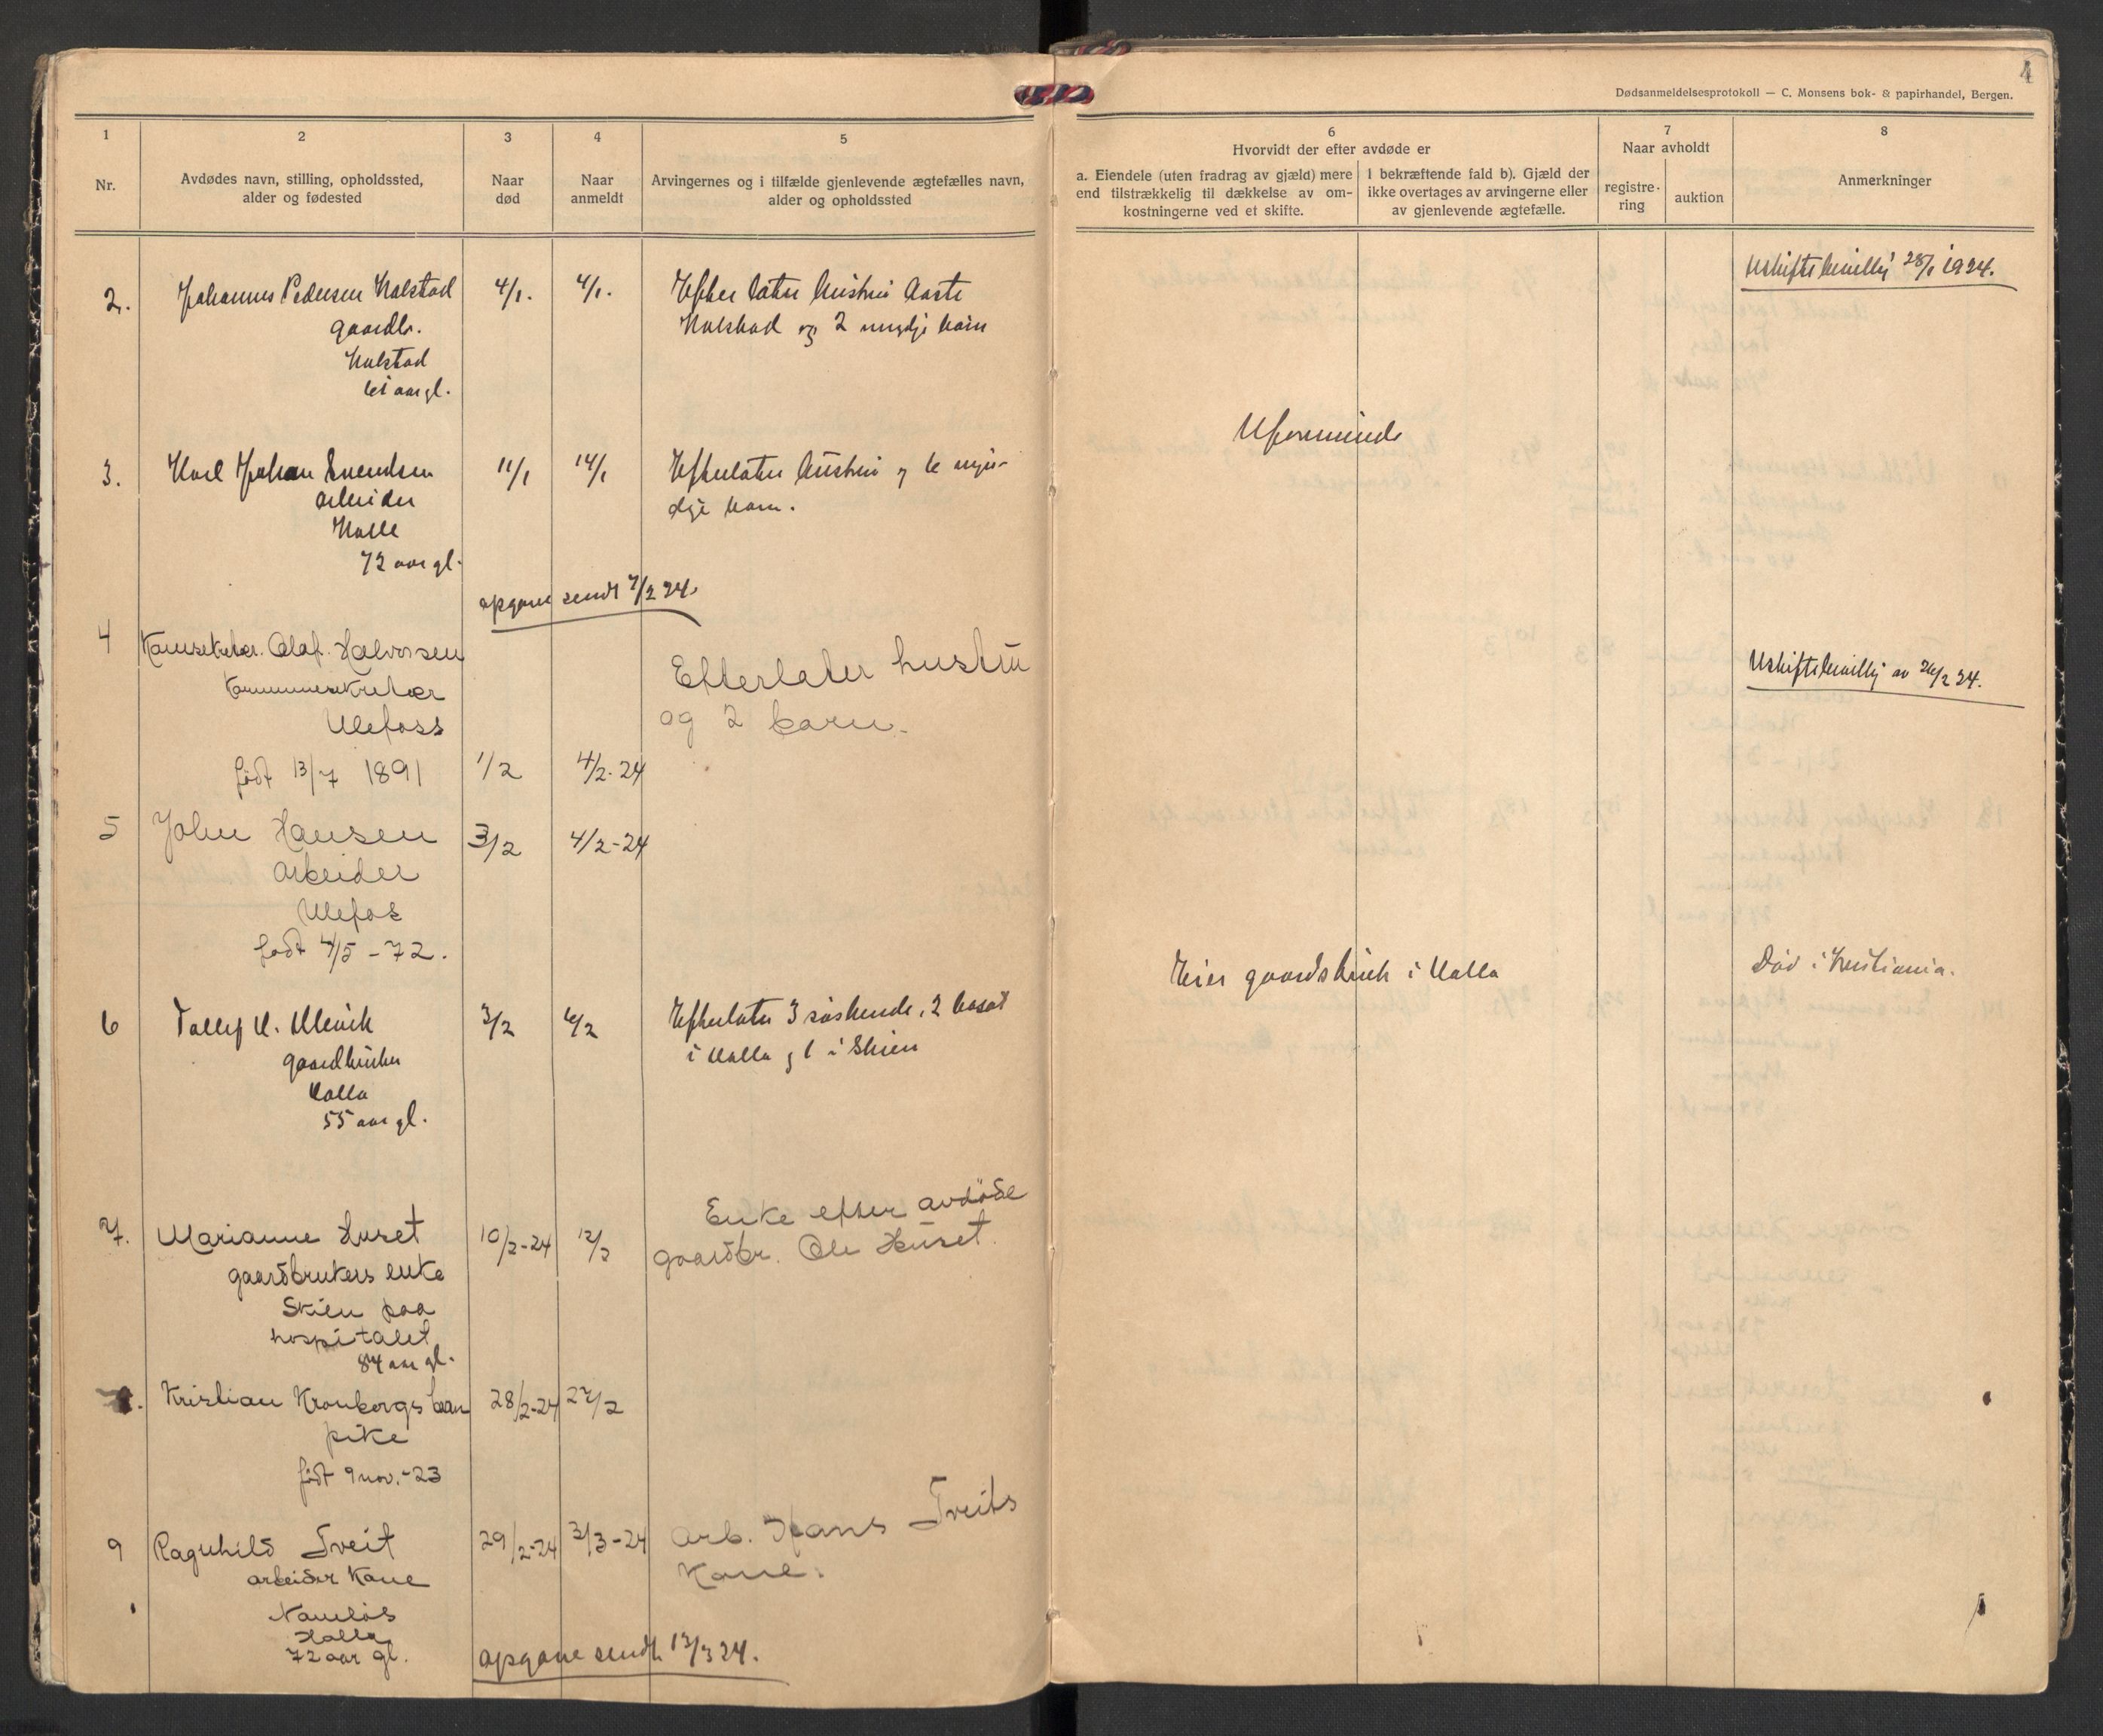 4
Dødsanmeldelsesprotokoll — C. Monsens bok- & papirhandel, Bergen.
1
Nr.
2
Avdødes navn, stilling, opholdssted,
alder og fødested
3
Naar
død
4
Naar
anmeldt
5
Arvingernes og i tilfælde gjenlevende ægtefælles navn,
alder og opholdssted
6
Hvorvidt der efter avdøde er
a. Eiendele (uten fradrag av gjæld) mere
end tilstrækkelig til dækkelse av om-
kostningerne ved et skifte.
I bekræftende fald b). Gjæld der
ikke overtages av arvingerne eller
av gjenlevende ægtefælle.
7
Naar avholdt
registre-
ring
auktion
8
Anmerkninger
2. Johannes Pedersen Kolstad 4/1. 4/1. Efterlater hustru Aaste
gaardbr. Kolstad og 2 myndje barn
Kolstad
61 aar gl.
Uskiftebevillg 28/1 1924.
3. Karl Johan Svendsen 11/1 14/1 Efterlater hustru og 6 myn-
arbeider dige barn.
Holla
72 aar gl.
Uformuende
opgave sendt 7/2 24.
4 Olaf Halvorsen Efterlater hustru
Kommunesekretær og 2 barn.
Ulefoss
født 13/7 1891 1/2 4/2-24
Uskiftebevillg av 26/2 24.
5 John Hansen 3/2 4/2-24
Arbeider
Ulefos
født 4/5 - 72.
6 Tollef H. Ulevik 3/2 6/2 Efterlater 3 søskende, 2 bosat
gaardbruker i Holla og 1 i Skien
Holla
55 aar gl.
Eier gaardsbruk i Holla
Død i Kristiania.
7. Marianne Huset 10/2-24 12/2 Enke efter avdøde
gaardbrukers enke gaardbr. Ole Huset.
Skien paa
hospitalet
84 aar gl.
Kristian Kronborgs barn 28/2-24 27/2
pike
født 9 nov.-23
9 Ragnhild Tveit 29/2-24 3/3-24 Arb. Hans Tveits
arbeider Kone Kone.
Namløs
Holla
72 aar gl.
opgave sendt 13/3 24.